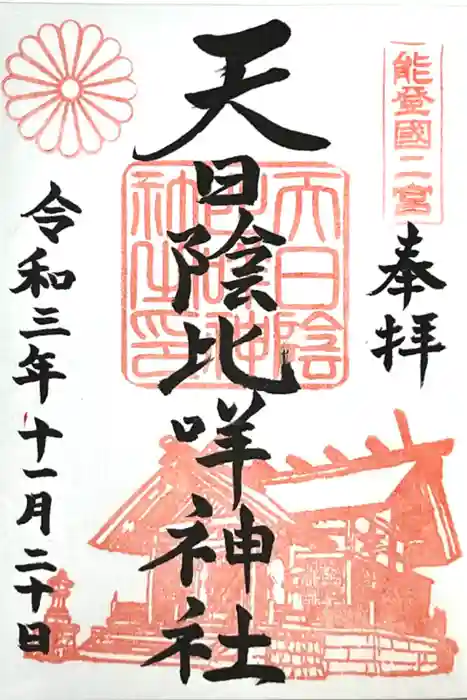 能登國二宮
奉拝
天日陰比咩神社
天日陰
比咩神
社之印
令和三年十一月二十日